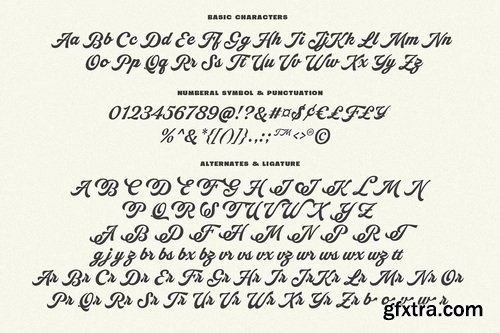 BASIC CHARACTERS
Aa Bb Cc Dd Ee Ff Gg Hh Ii Jj Kk Ll Mm Nn
Oo Pp Qq Rr Ss Tt Uu Vv Ww Xx Yy Zz
NUMBERAL SYMBOL & PUNCTUATION
0123456789@!?&#¤$¢€£F£Y
%^&*{[()]}.,:;™<>®©
ALTERNATES & LIGATURE
A B C D E F G H I J K L M N
P Q R S T U V W X Y Z
A B D F H M N P R T
g j y z br bs bx bz vr vs vx vz wr ws wx wz tt
Ar Br Cr Dr Er Fr Gr Hr Ir Jr Kr Lr Mr Nr Or
Pr Qr Rr Sr Tr Ur Vr Wr Xr Yr Zr
gfxtra.com